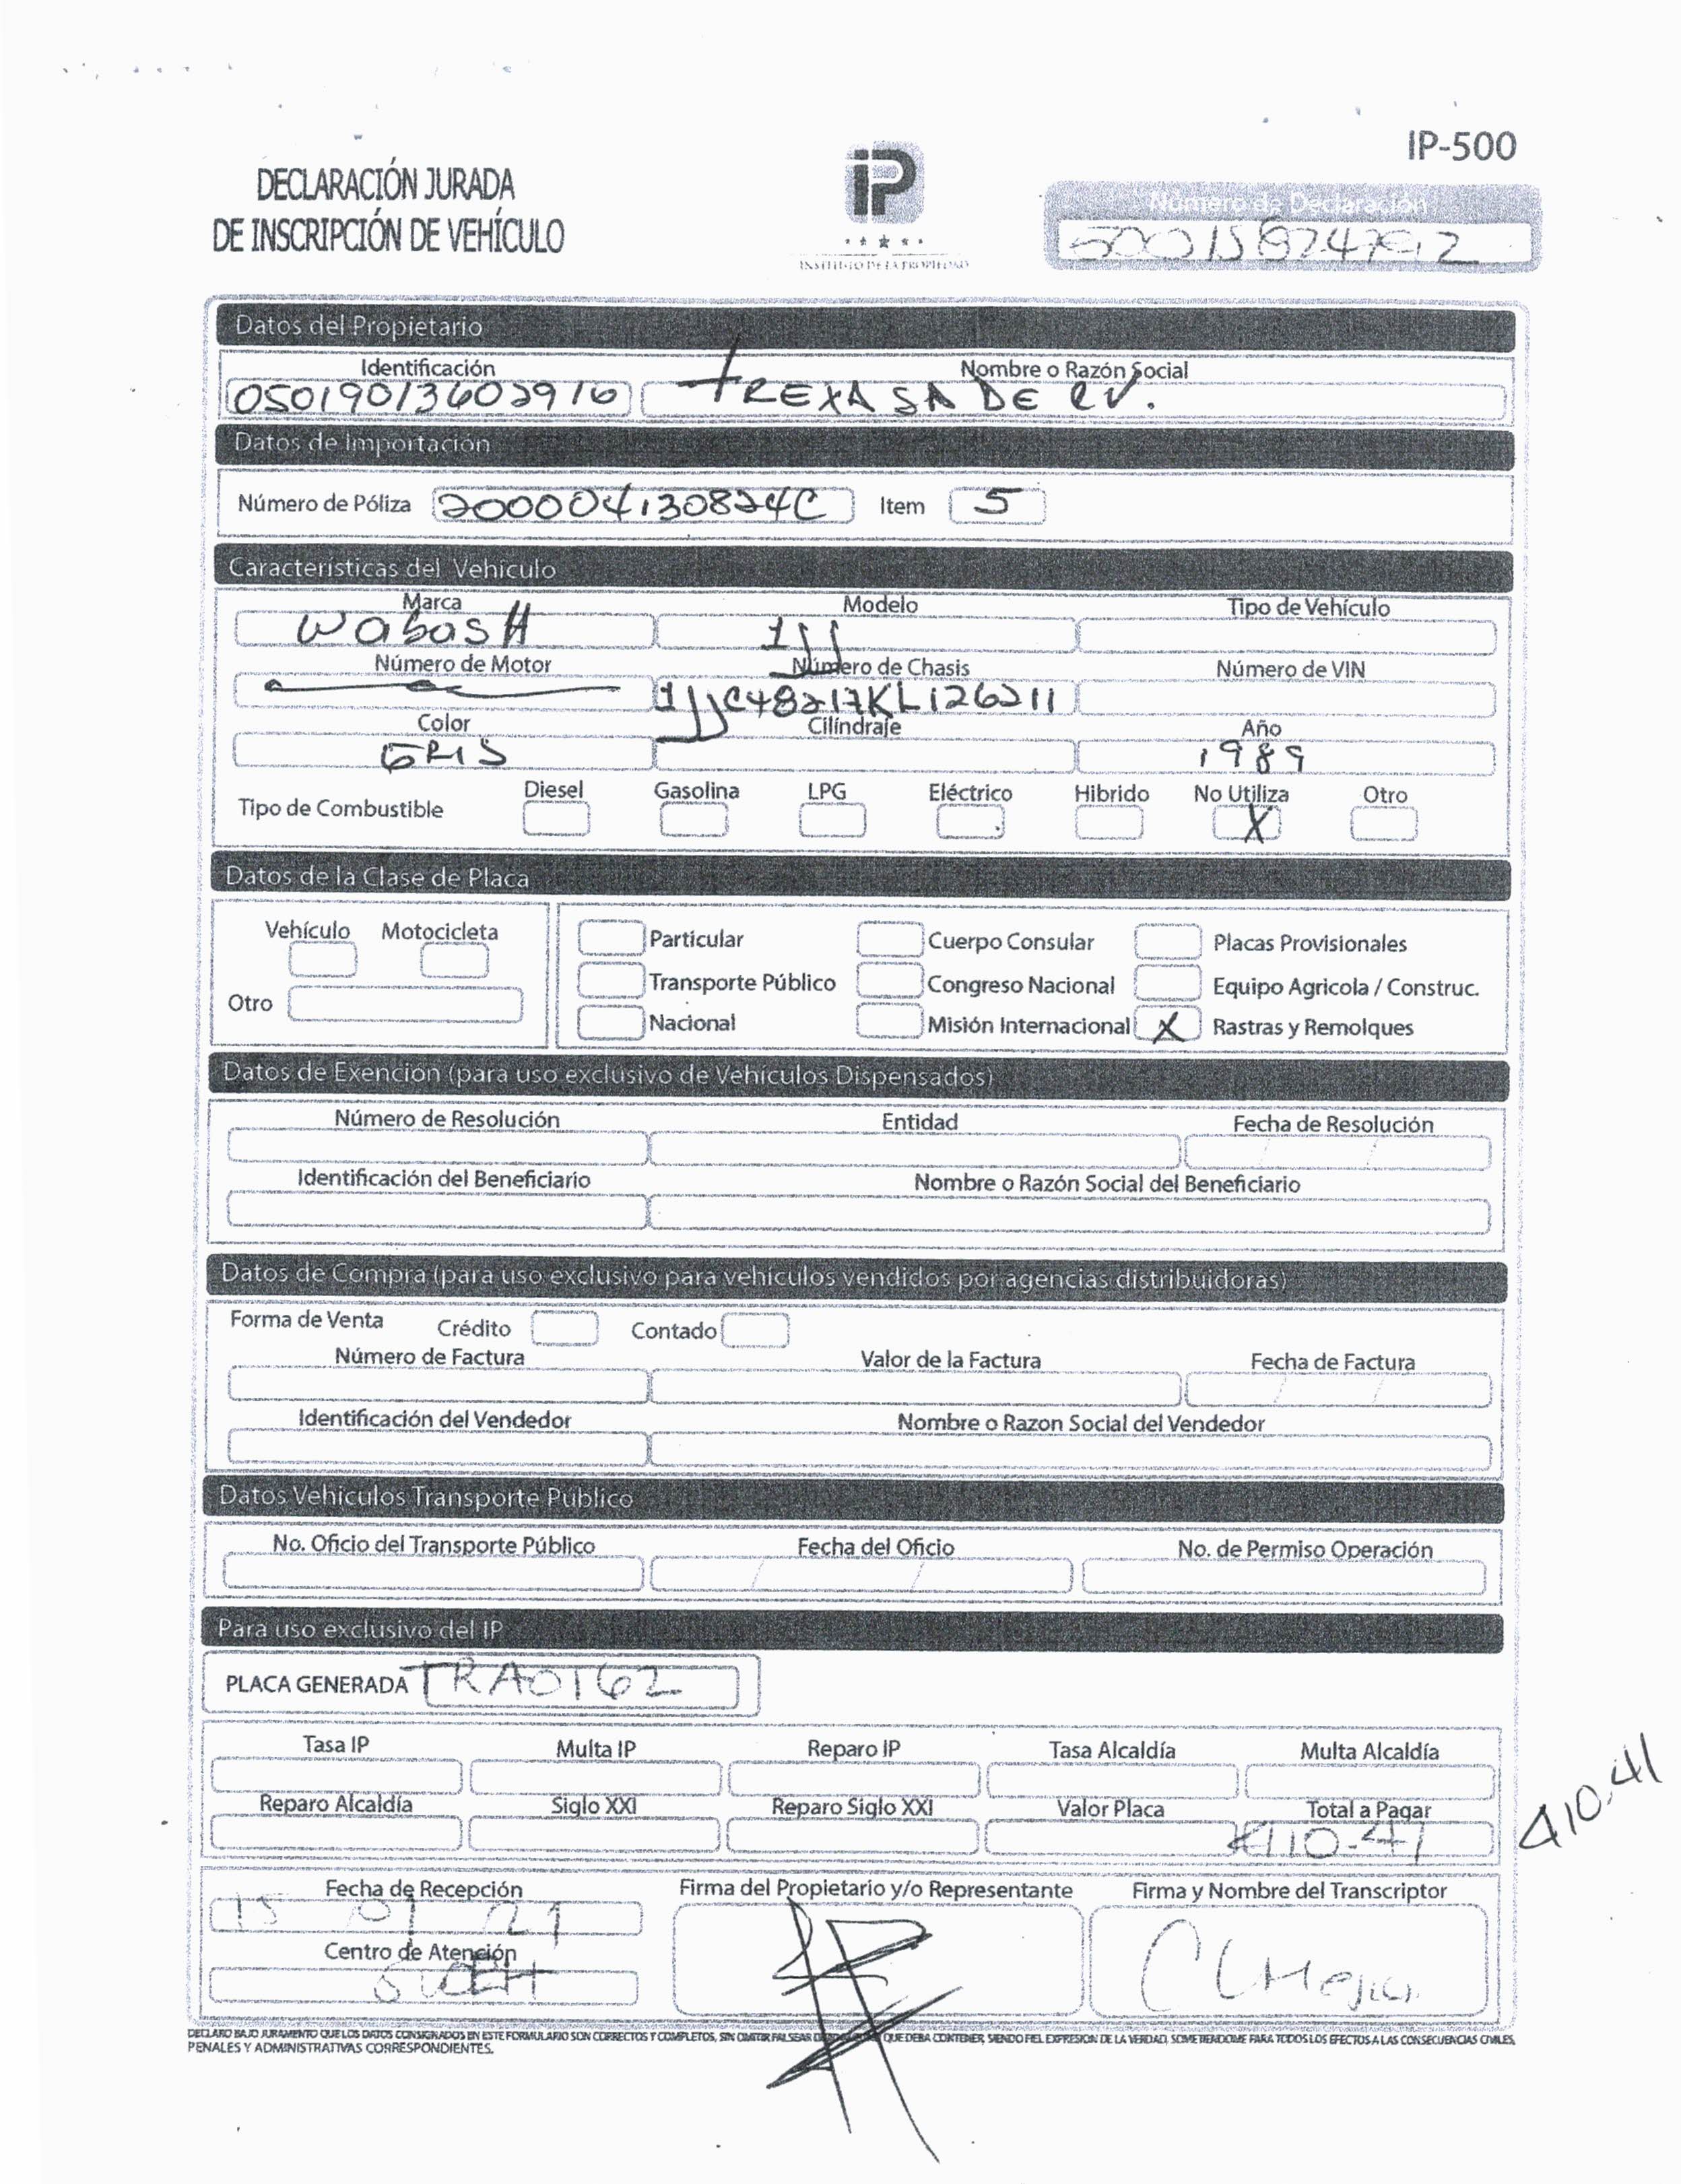 IP-500
DECLARACIÓN JURADA
DE INSCRIPCIÓN DE VEHÍCULO
iP
INSTITUTO DE LA PROPIEDAD
Número de Declaración
Datos del Propietario
Identificación Nombre o Razón Social
05019013602916 TREXA SA DE CV.
Datos de Importación
Número de Póliza 200004130824C Item 5
Características del Vehículo
Marca Modelo Tipo de Vehículo
WabasH 1JJ
Número de Motor Número de Chasis Número de VIN
1JJC48217KL126211
Color Cilíndraje Año
GRIS 1989
Tipo de Combustible Diesel Gasolina LPG Eléctrico Hibrido No Utiliza Otro
X
Datos de la Clase de Placa
Vehículo Motocicleta
Otro
Particular Cuerpo Consular Placas Provisionales
Transporte Público Congreso Nacional Equipo Agricola / Construc.
Nacional Misión Internacional X Rastras y Remolques
Datos de Exención (para uso exclusivo de Vehículos Dispensados)
Número de Resolución Entidad Fecha de Resolución
Identificación del Beneficiario Nombre o Razón Social del Beneficiario
Datos de Compra (para uso exclusivo para vehículos vendidos por agencias distribuidoras)
Forma de Venta Crédito Contado
Número de Factura Valor de la Factura Fecha de Factura
Identificación del Vendedor Nombre o Razon Social del Vendedor
Datos Vehículos Transporte Público
No. Oficio del Transporte Público Fecha del Oficio No. de Permiso Operación
Para uso exclusivo del IP
PLACA GENERADA
Tasa IP Multa IP Reparo IP Tasa Alcaldía Multa Alcaldía
Reparo Alcaldía Siglo XXI Reparo Siglo XXI Valor Placa Total a Pagar
410.41 410.41
Fecha de Recepción Firma del Propietario y/o Representante Firma y Nombre del Transcriptor
15 01 21
Centro de Atención
DECLARO BAJO JURAMENTO QUE LOS DATOS CONSIGNADOS EN ESTE FORMULARIO SON CORRECTOS Y COMPLETOS, SIN OMITIR FALSEAR QUE DEBA CONTENER, SIENDO FIEL EXPRESION DE LA VERDAD, SOMETIENDOME PARA TODOS LOS EFECTOS A LAS CONSECUENCIAS CIVILES,
PENALES Y ADMINISTRATIVAS CORRESPONDIENTES.